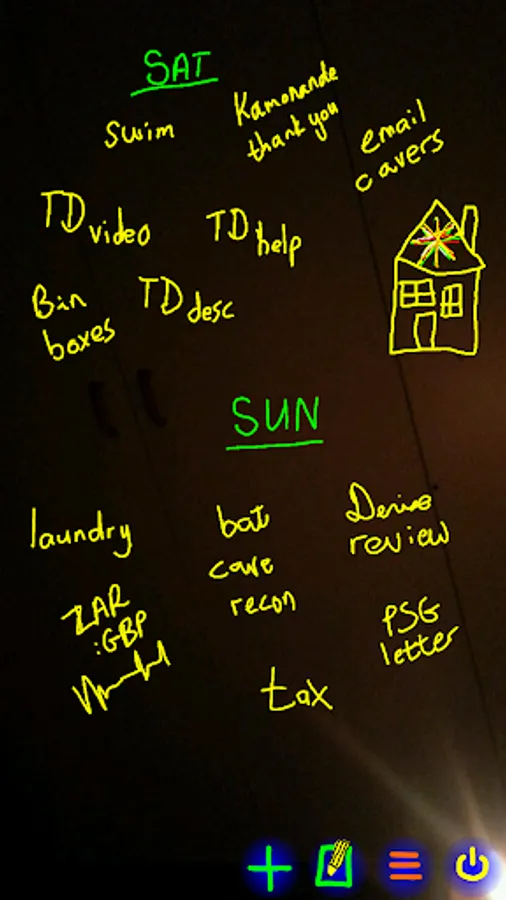 SAT
swim
Kamonande
thank you
email
cavers
TD video
TD help
Bin
boxes
TD desc
SUN
laundry
bat
cave
recon
review
ZAR
:GBP
PSG
letter
tax